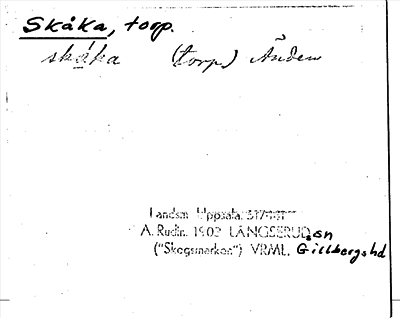 Skåka, torp.
skåka (torp) Änden
Landsm. Uppsala.
A. Rudin. 1903 LÅNGSERUD sn
("Skogsmarker") VRML. Gillbergs hd